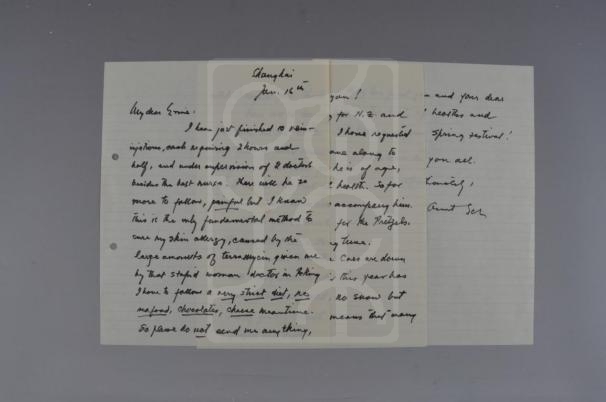 Shanghai
Jan. 16th
My dear Ernie:
I have just finished 10 vein-
injections, each requiring 2 hours and
half, and under supervision of 2 doctors
besides the best nurse. There will be 20
more to follow, painful but I know
this is the only fundamental method to
cure my skin allergy, caused by the
large amounts of terramycin given me
by that stupid woman doctor in Peking
I have to follow a very strict diet, no
seafood, chocolates, cheese meantime.
So please do not send me anything,
you!
for N.Z. and
I have requested
come along to
he is of age,
health. So for
accompany him.
for the Pretzels.
time.
ones are down
this year has
no snow but
means that many
and your dear
healths and
Spring Festival!
you all.
Aunt